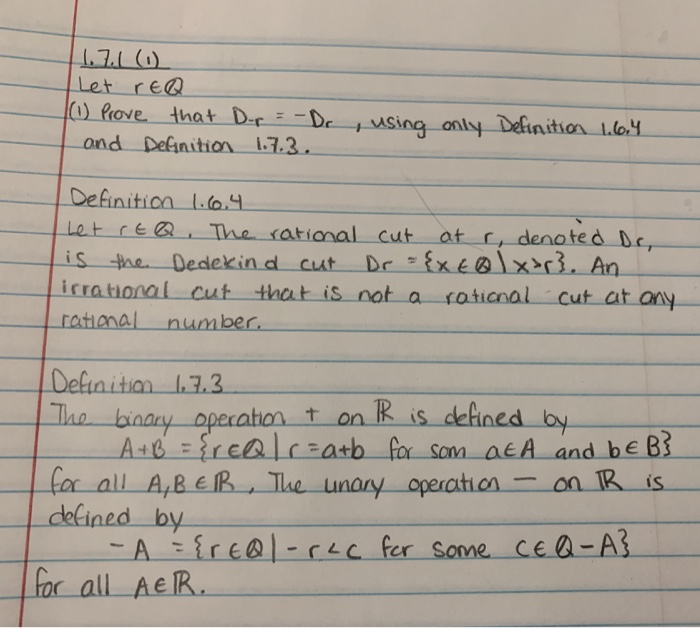 1.7.1 (1)
Let r∈ℚ
(1) Prove that D-r = -Dr, using only Definition 1.6.4
and Definition 1.7.3.
Definition 1.6.4
Let r∈ℚ. The rational cut at r, denoted Dr,
is the Dedekind cut Dr = {x∈ℚ | x>r}. An
irrational cut that is not a rational cut at any
rational number.
Definition 1.7.3
The binary operation + on ℝ is defined by
A+B = {r∈ℚ | r=a+b for som a∈A and b∈B}
for all A,B∈ℝ, The unary operation — on ℝ is
defined by
-A = {r∈ℚ | -r<c for some c∈ℚ-A}
for all A∈ℝ.